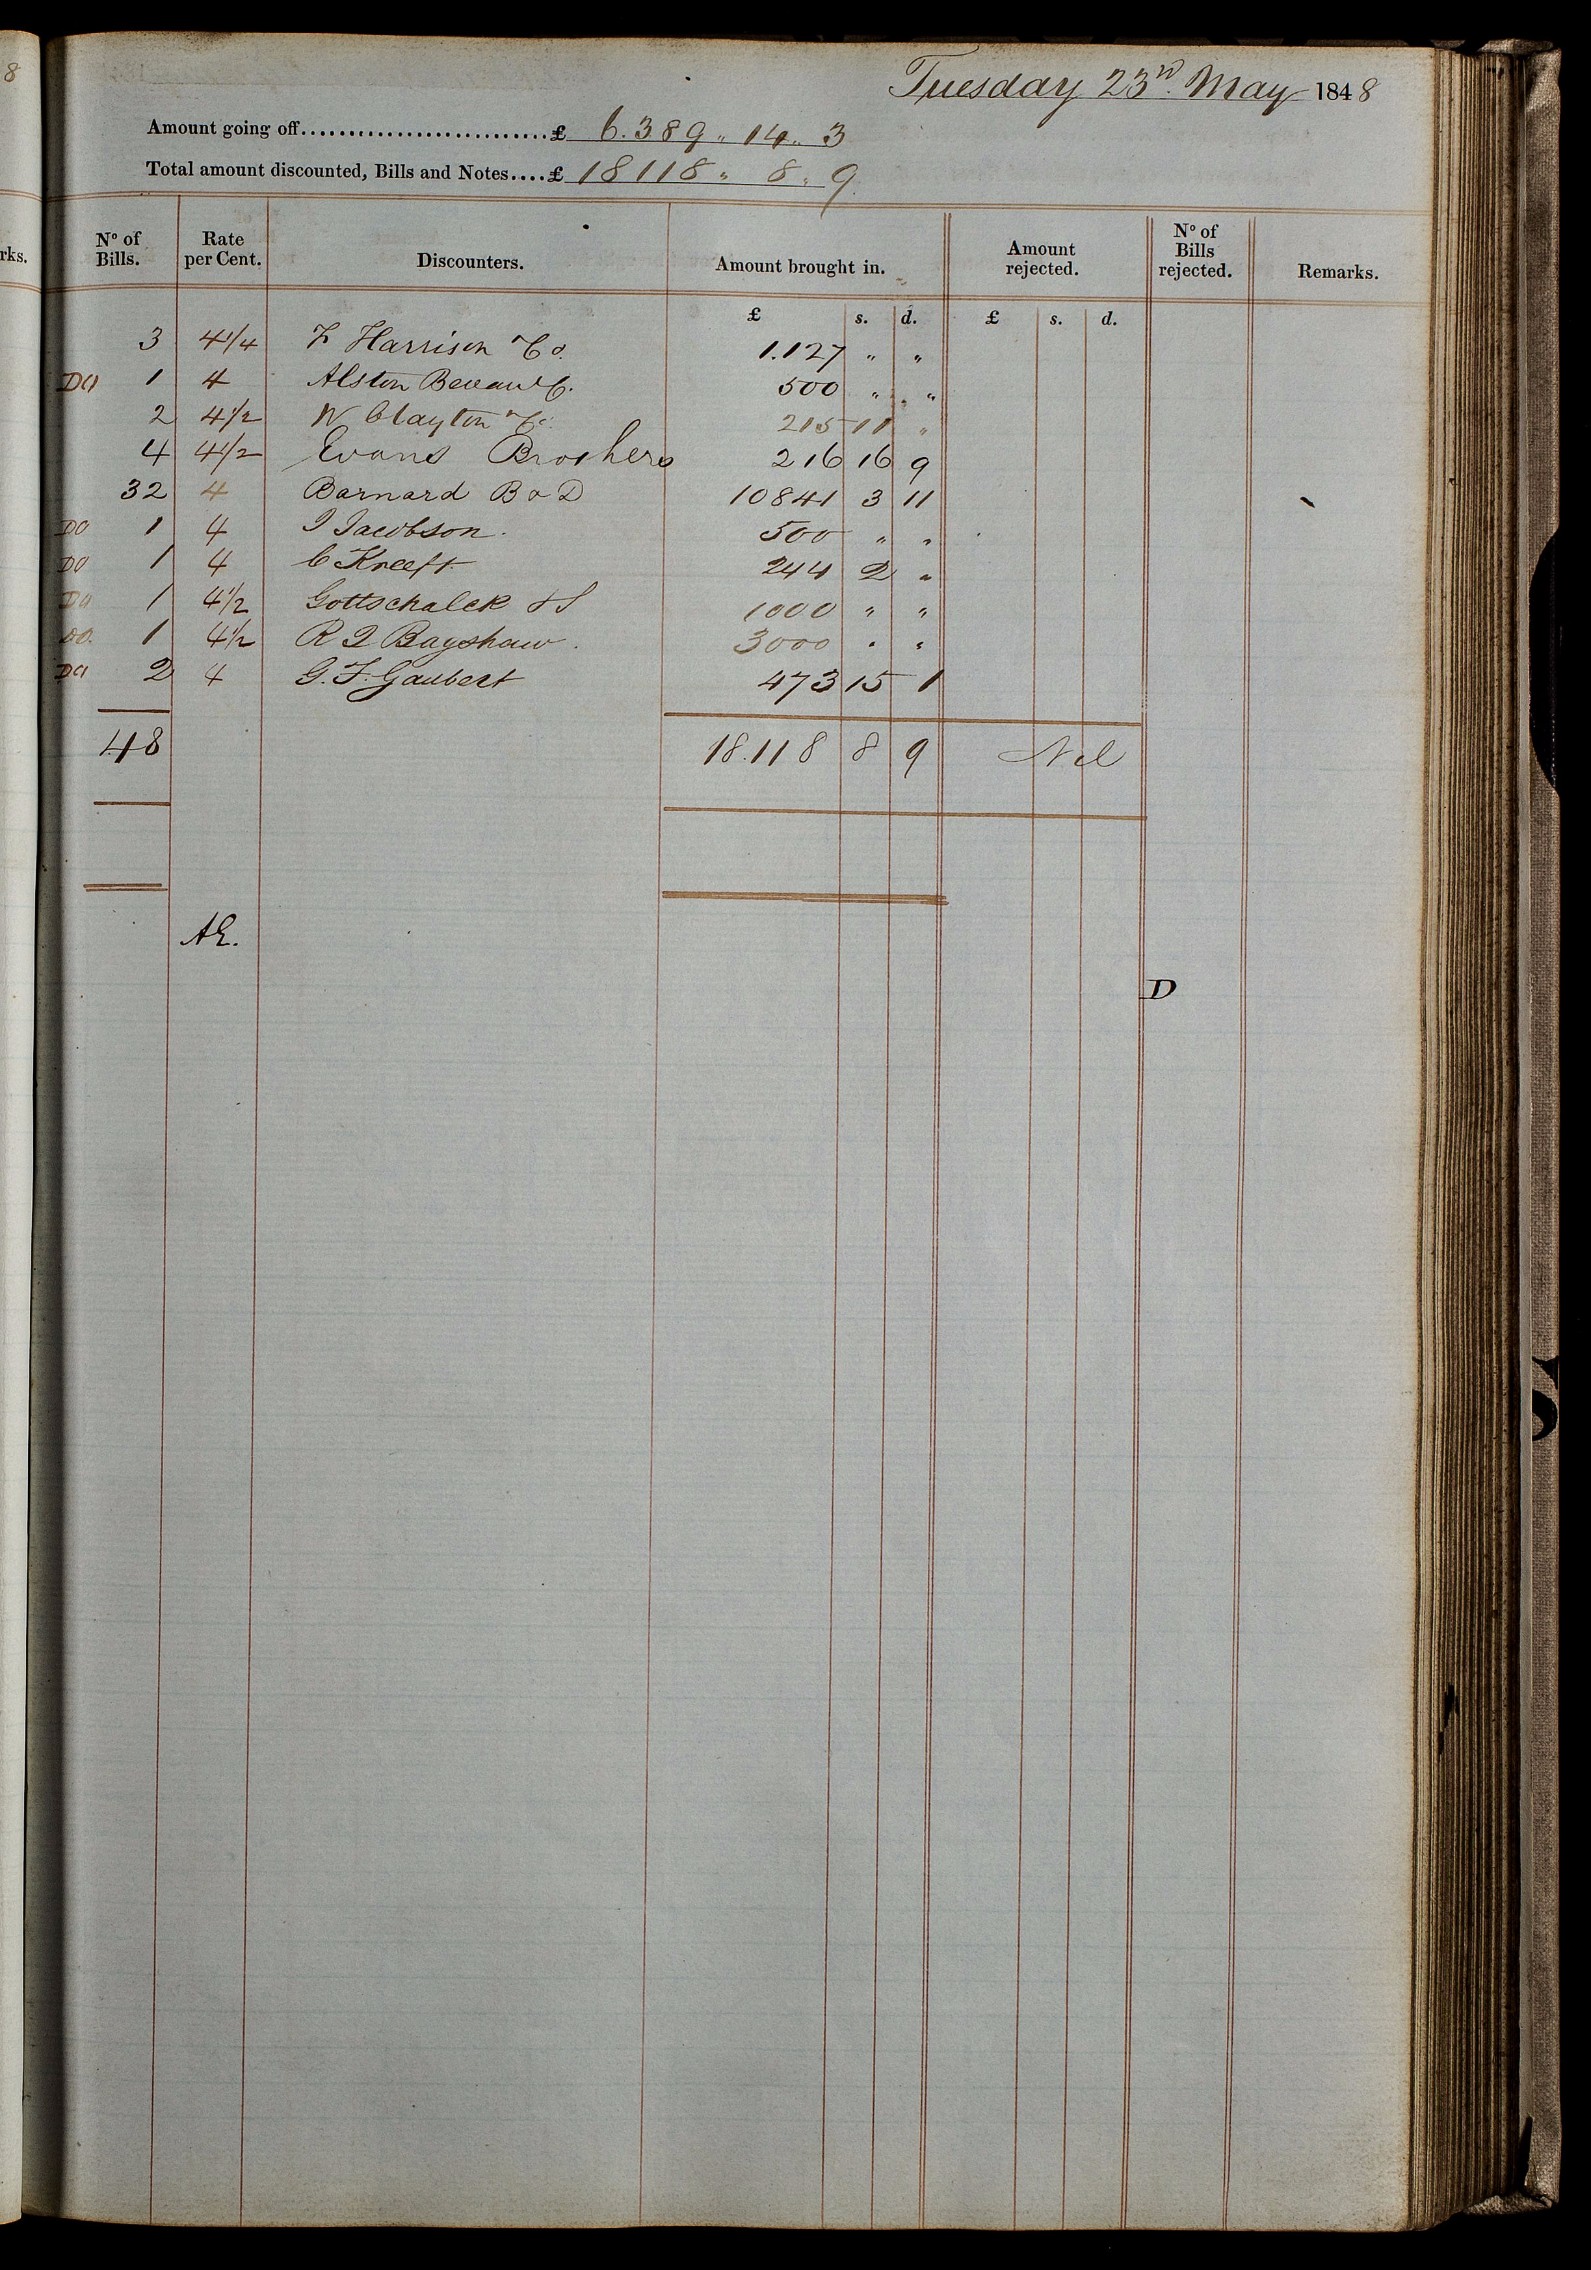 8
rks.
Tuesday 23rd May 1848
Amount going off..........................£ 6.389 " 14 " 3
Total amount discounted, Bills and Notes....£ 18118 " 8 " 9
No of Bills. Rate per Cent. Discounters. Amount brought in. Amount rejected. No of Bills rejected. Remarks.
£ s. d. £ s. d.
3 4 1/4 F Harrison & Co. 1.127 " "
DA 1 4 Alston Bevan & C. 500 " "
2 4 1/2 W Clayton & Co 215 11 "
4 4 1/2 Evans Brothers 216 16 9
32 4 Barnard B & D 10841 3 11
DO 1 4 I Jacobson. 500 " "
DO 1 4 C Kreeft 244 2 "
DA 1 4 1/2 Gottschalck & S 1000 " "
DO. 1 4 1/2 R I Bagshaw. 3000 " "
DA 2 4 G. F. Gaubert 473 15 1
48 18.118 8 9 Nil
AE.
D